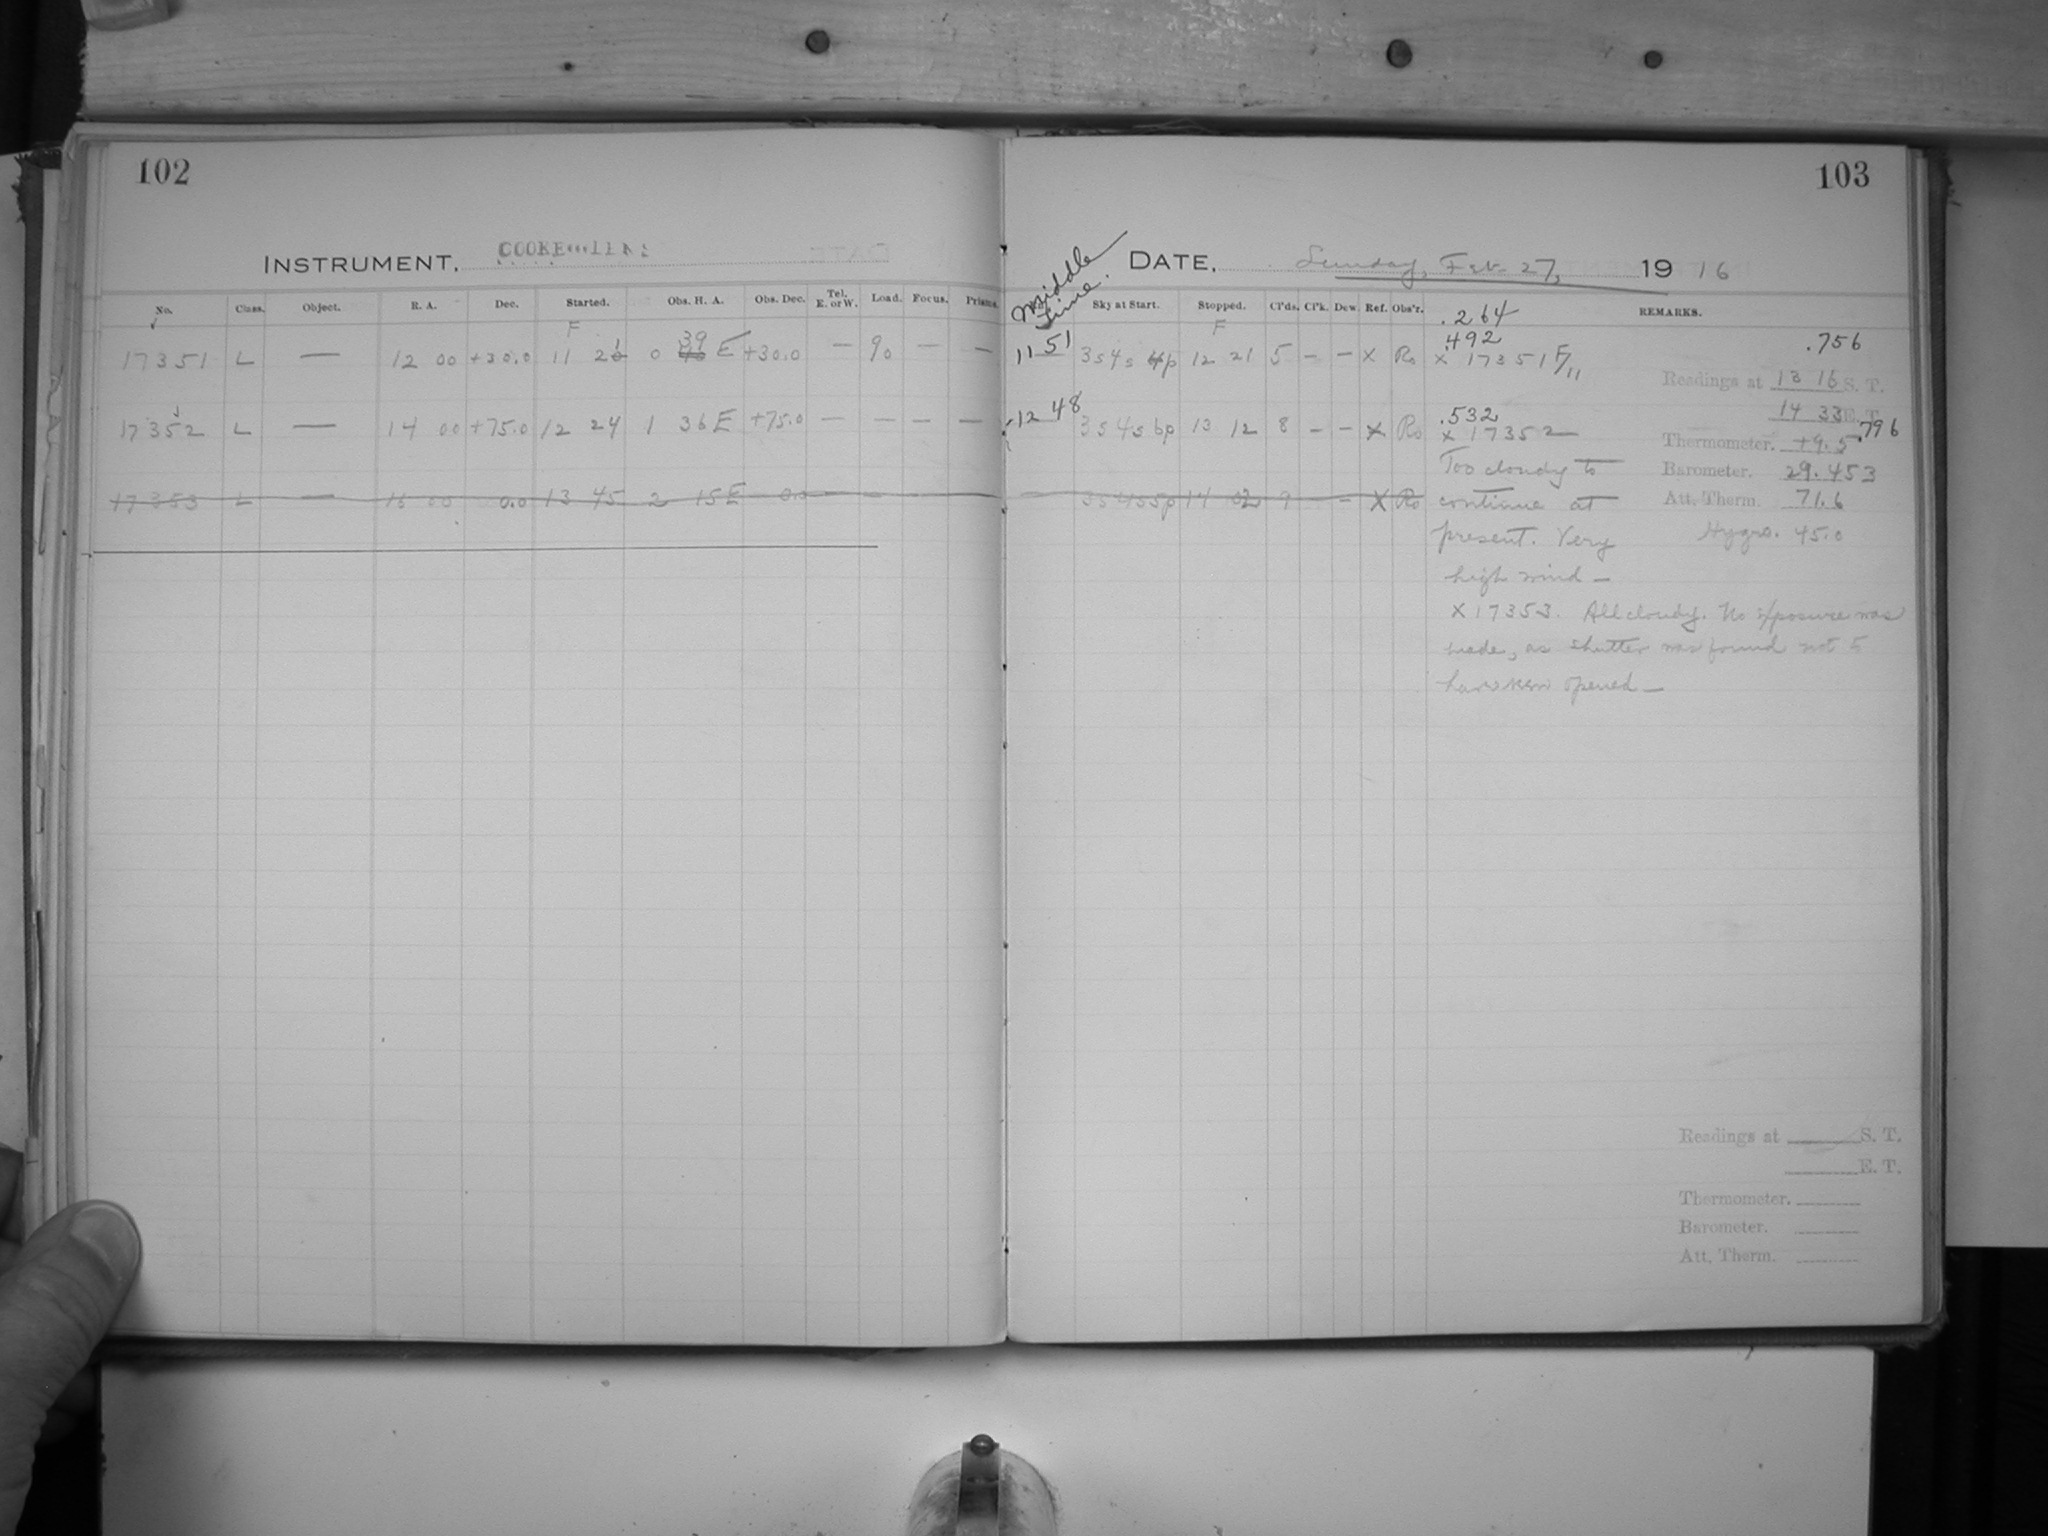 102
INSTRUMENT.
No. Class. Object. R. A. Dec. Started. Obs. H. A. Obs. Dec. Tel. E. or W. Load. Focus. Prisms.
F
17351 L — 12 00 +30.0 11 21 0 39 E +30.0 — 90 — —
17352 L — 14 00 +75.0 12 24 1 36 E +75.0 — — — —
17353 L — 16 00 0.0 13 45 2 15 E 0.0 — —
103
DATE. Sunday, Feb. 27, 1916
Middle Time.
Sky at Start. Stopped. Cl'ds. Cl'k. Dew. Ref. Obs'r. REMARKS.
.264
F
.492
.756
11 51 3s4s4p 12 21 5 — — X Ro X 17351 F/11
Readings at 13 16 S. T.
14 33 E. T.
12 48 3s4s6p 13 12 8 — — X Ro
.532
X 17352 —
.796
Thermometer. +9.5
Too cloudy to
Barometer. 29.453
3s4s5p 14 02 9 — X Ro
continue at
Att. Therm. 71.6
present. Very
Hygro. 45.0
high wind —
X 17353. All cloudy. No exposure was
made, as shutter was found not to
have been opened —
Readings at S. T.
E. T.
Thermometer.
Barometer.
Att. Therm.